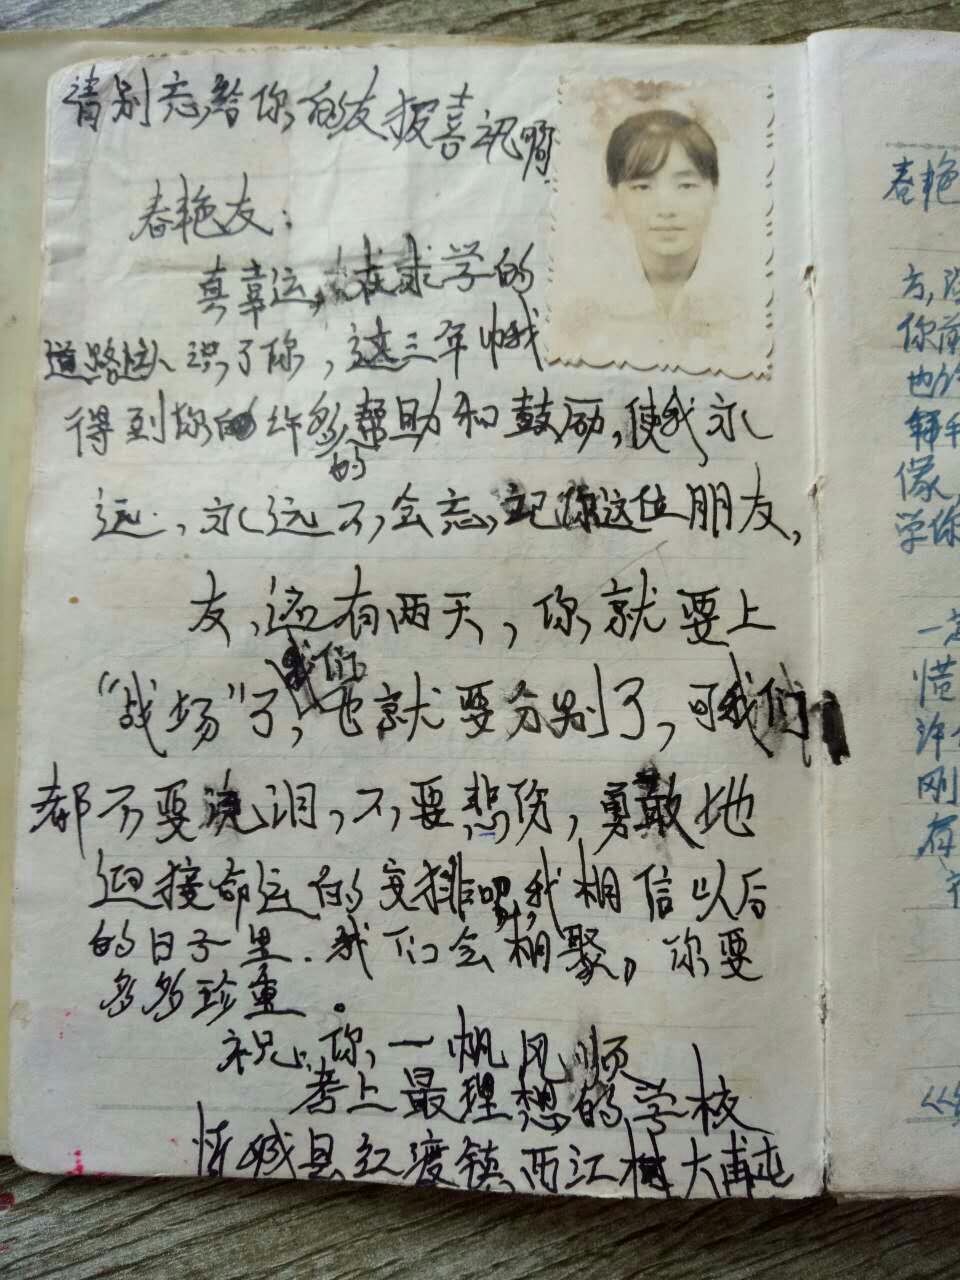 请别忘给你的友报喜讯啊
春艳友：
真幸运，在求学的
道路上认识了你，这三年中我
得到你的许多的帮助和鼓励，使我永
远，永远不会忘记你这位朋友，
友，还有两天，你就要上
“战场”了，我们也就要分别了，可我们
都不要流泪，不要悲伤，勇敢地
迎接命运的安排吧，我相信以后
的日子里．我们会相聚，你要
多多珍重。
祝：你，一帆风顺
考上最理想的学校
忻城县红渡镇西江村大 屯
春艳
方，
你
也
像，
学你
一
惜
许
刚
存